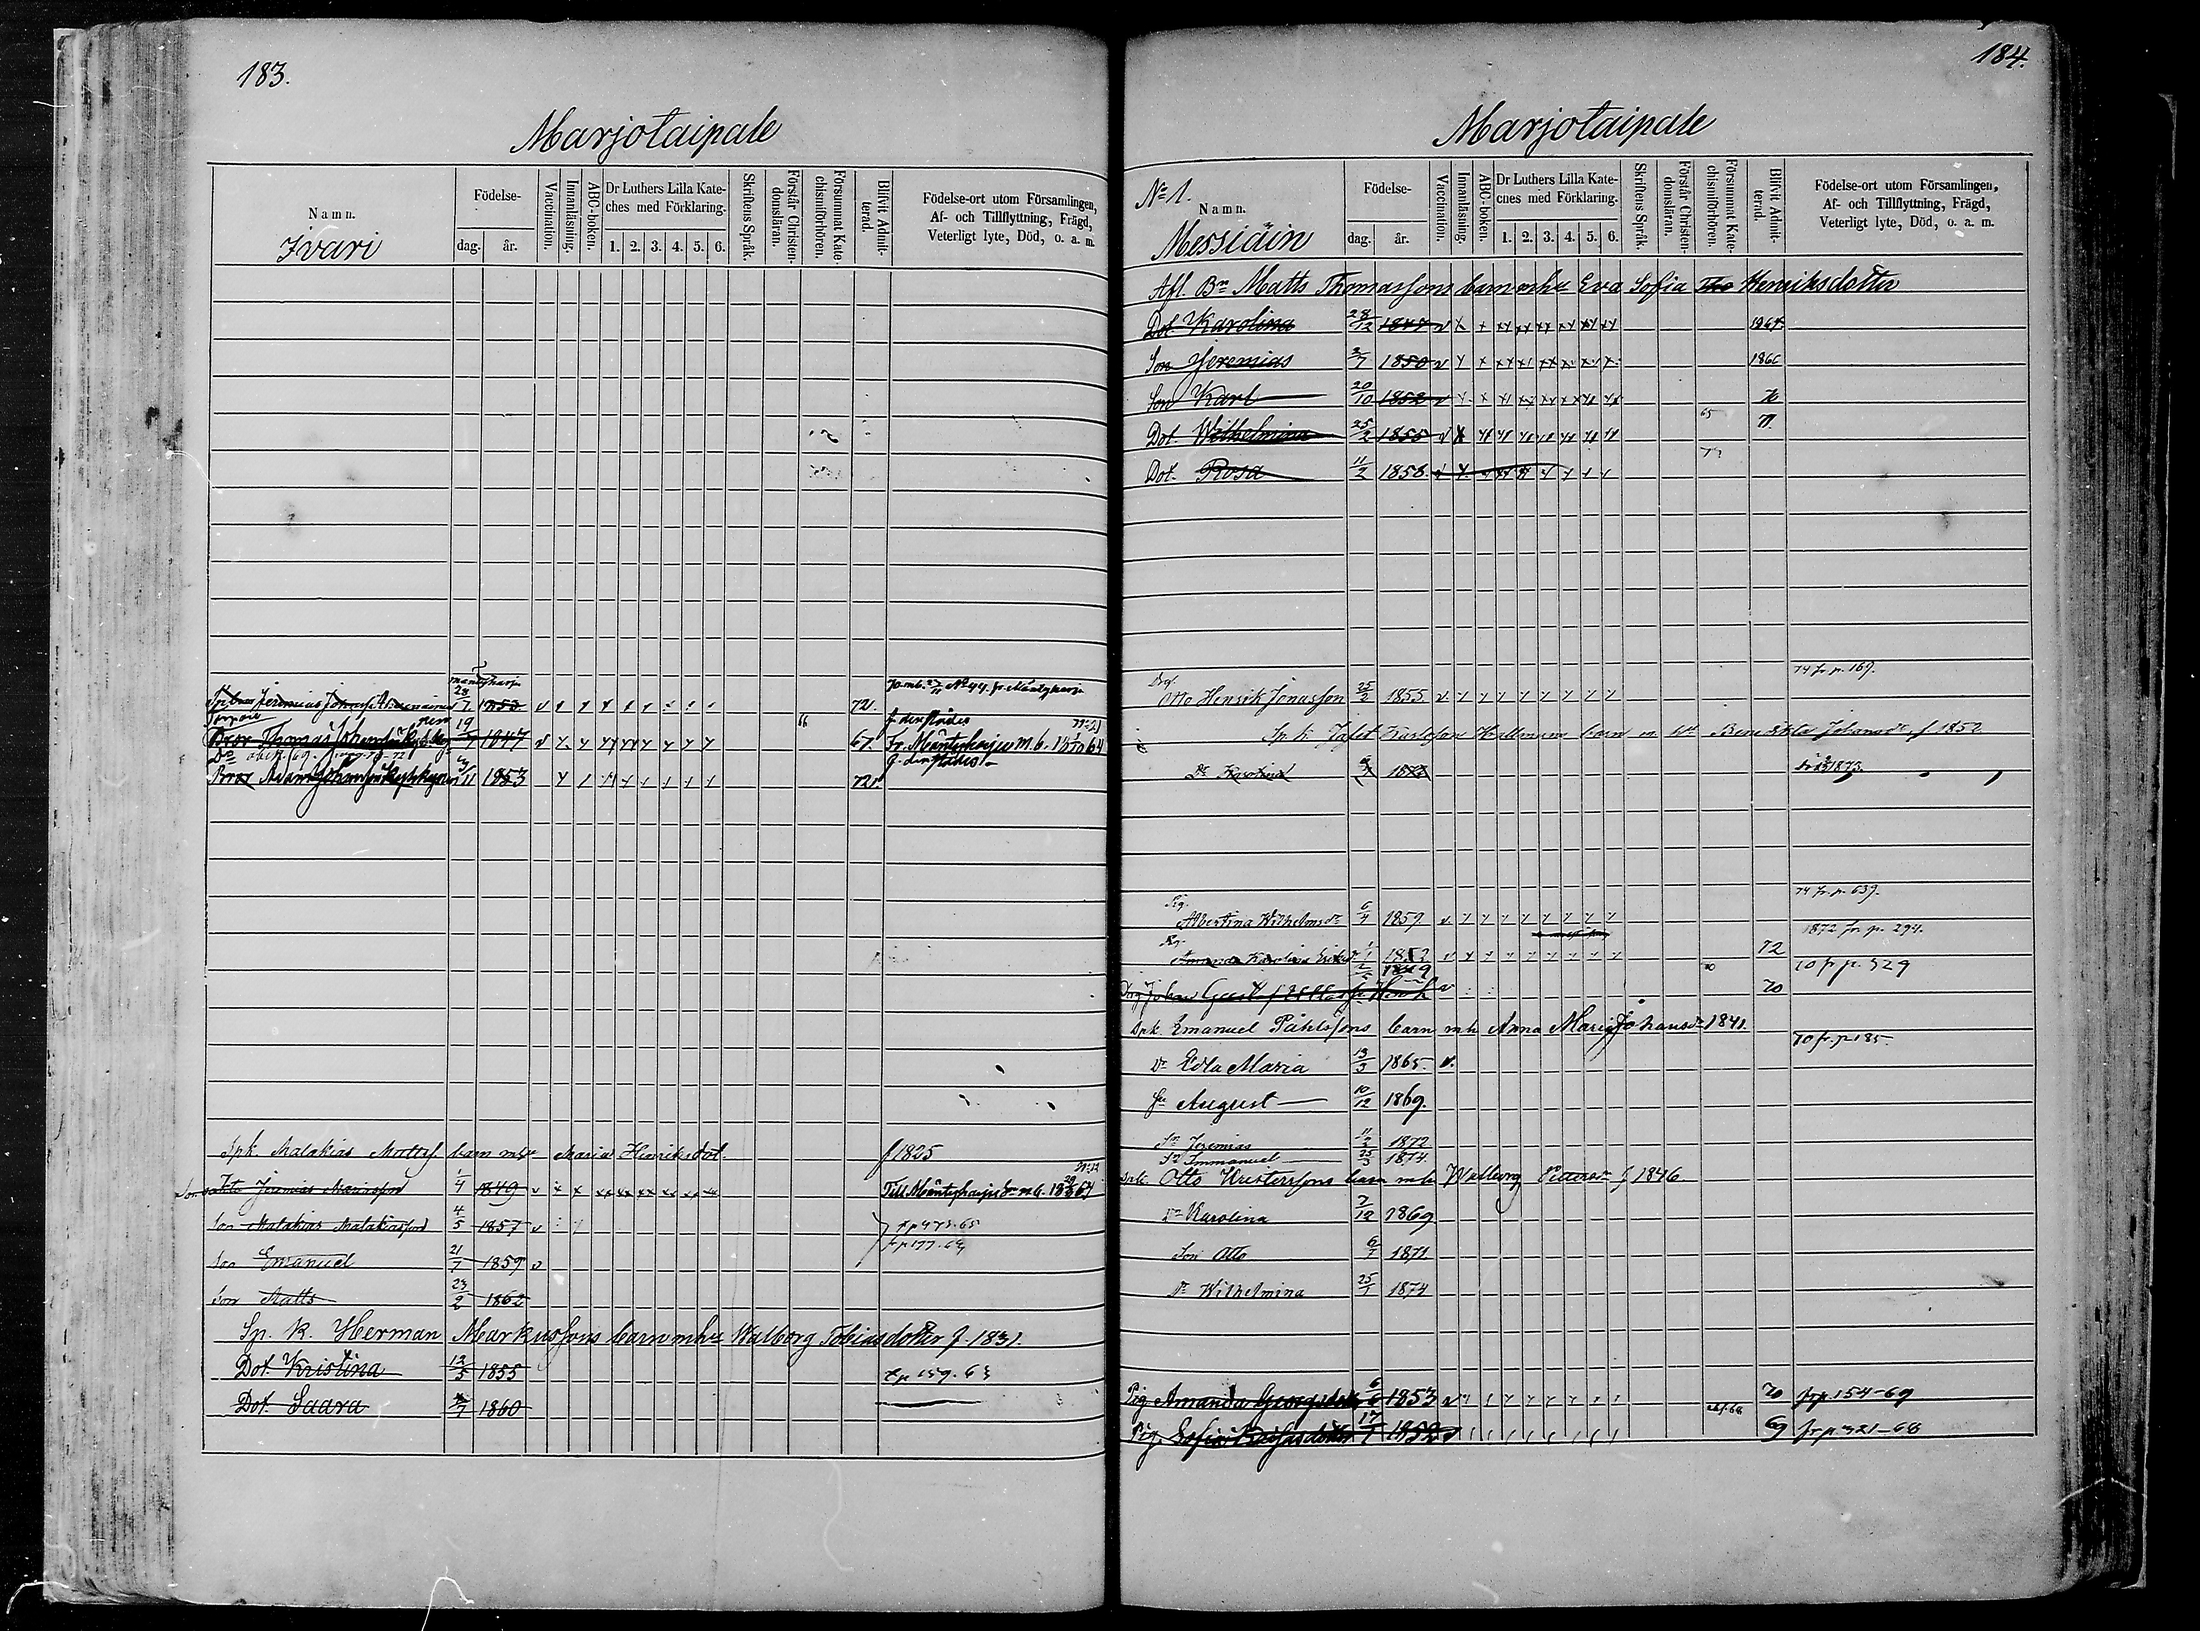 183.
Marjotaipale
Namn.
Ivari
Födelse-
dag. år.
Vaccination.
Innanläsning.
ABC-boken.
Dr Luthers Lilla Kateches med Förklaring.
1. 2. 3. 4. 5. 6.
Skriftens Språk.
Förstår Christendomsläran.
Försummat Katechismiförhören.
Blifvit Admitterad.
Födelse-ort utom Församlingen,
Af- och Tillflyttning, Frägd,
Veterligt lyte, Död, o. a. m.
Mäntyharju
Jeremias 28/7 1853 72.
Bror Thomas Johansson 19/7 1847 67. Fr. Mäntyharju m. b.
Bror Adam 11 1853 72.
Spk. Malakias Mattss. barn mhu Maria Henriksdot. f 1825
Jeremias 1/4 1849 Till Mäntyharju
Son Malakias Malakiasson 4/5 1857
Son Emanuel 21/7 1859
Son Matts 23/2 1862
Sp. k. Herman Markussons barn mhu Walborg Tobiasdotter f. 1831.
Dot. Kristina 12/5 1855 tp 159. 63
Dot. Saara 1860
184.
Marjotaipale
No 1.
Namn.
Messiäin
Födelse-
dag. år.
Vaccination.
Innanläsning.
ABC-boken.
Dr Luthers Lilla Kateches med Förklaring.
1. 2. 3. 4. 5. 6.
Skriftens Språk.
Förstår Christendomsläran.
Försummat Katechismiförhören.
Blifvit Admitterad.
Födelse-ort utom Församlingen,
Af- och Tillflyttning, Frägd,
Veterligt lyte, Död, o. a. m.
Afl. Bn Matts Thomassons barn mhu Eva Sofia Henriksdotter
Dot. Karolina 28/12 1847 1864
Son Jeremias 2/7 1850 1866
Son Karl 20/10 1852 70
Dot. Wilhelmina 25/2 1855 65 71
Dot. Rosa 11/2 1858.
74 fr. p. 169.
Drg.
Otto Henrik Jonasson 25/2 1855
Sp. k. Jafet Karlsson Hallman barn m. h. Johansdr f. 1852
Dr Karolina 1873.
74 fr. p. 639.
Pig.
Albertina Wilhelmsdr 6/4 1859
1872 fr. p. 294.
Amanda Karolina 1/1 1852 72
1849 70 fr p. 329
Drg Johan Gustaf 70
Spk. Emanuel Påhlssons barn mh Anna Maria Johansdr 1841.
70 fr. p 185.
Dr Edla Maria 13/3 1865.
Sn August 10/12 1869.
Sn Jeremias 11/2 1872
Sn Immanuel 25/3 1874.
Otto Kristerssons barn mh Walborg f 1846
Dr Karolina 7/12 1869
Son Otto 6/7 1871
Dr Wilhelmina 25/1 1874
Pig Amanda Georgsdotter 6/6 1853 70 frp 154-69
Pig. 17/1 1852 69 fr p 321-68